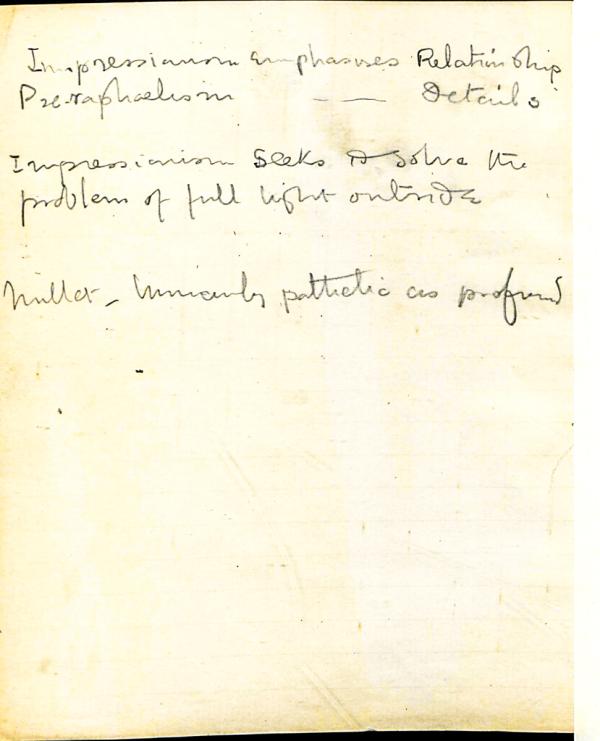 Impressionism emphasises Relationship
Pre-raphaelism — — Details
Impressionism Seeks to solve the
problem of full light outside
Millet – pathetic as profound